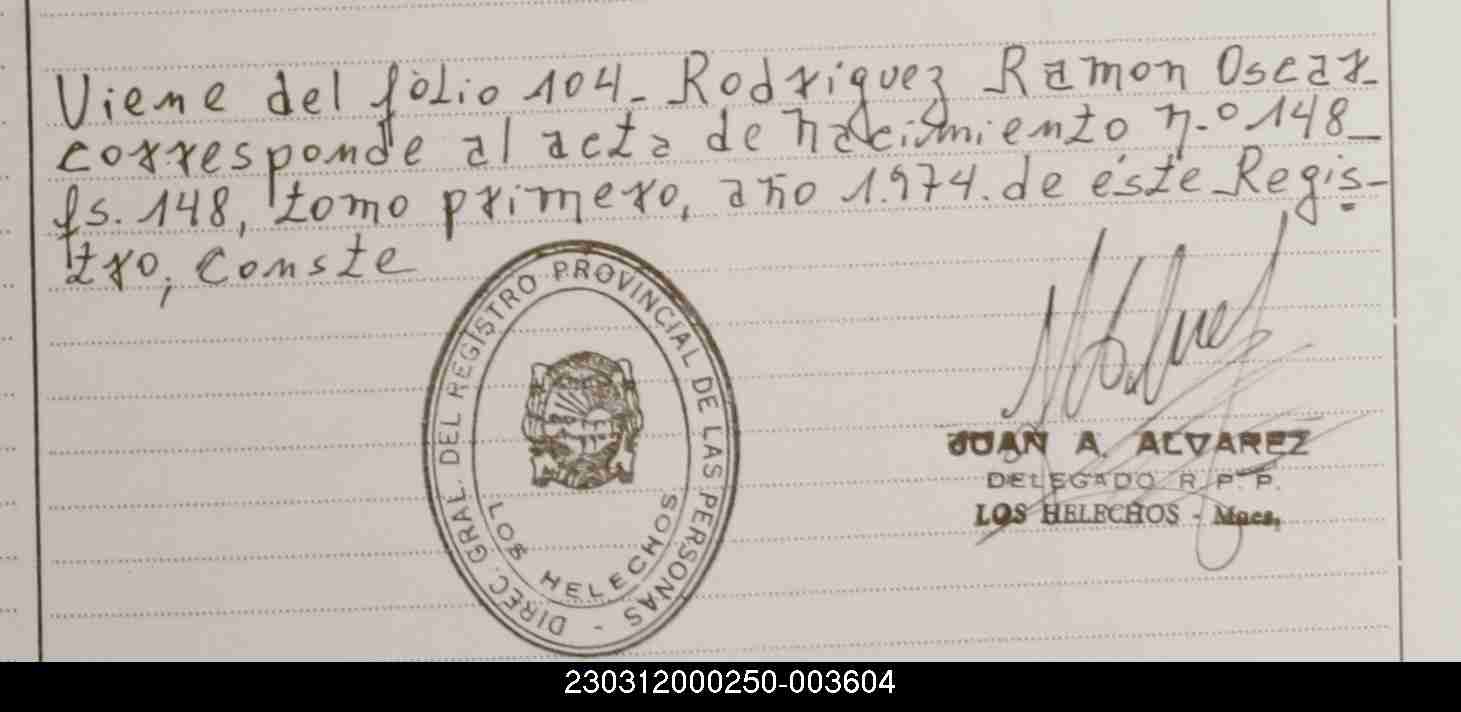 Viene del fólio 104_ Rodriguez Ramon Oscar_
corresponde al acta de nacimiento n.º 148_
fs. 148, tomo primero, año 1.974. de éste Regis-
tro, conste
DIREC. GRAL. DEL REGISTRO PROVINCIAL DE LAS PERSONAS -
LOS HELECHOS
JUAN A. ALVAREZ
DELEGADO R. P. P.
LOS HELECHOS - Mnes.
230312000250-003604